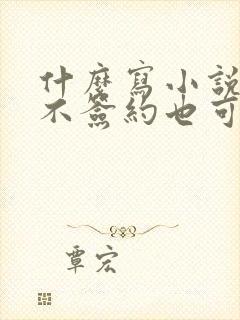 什麼寫小說
不簽約也可
覃宏